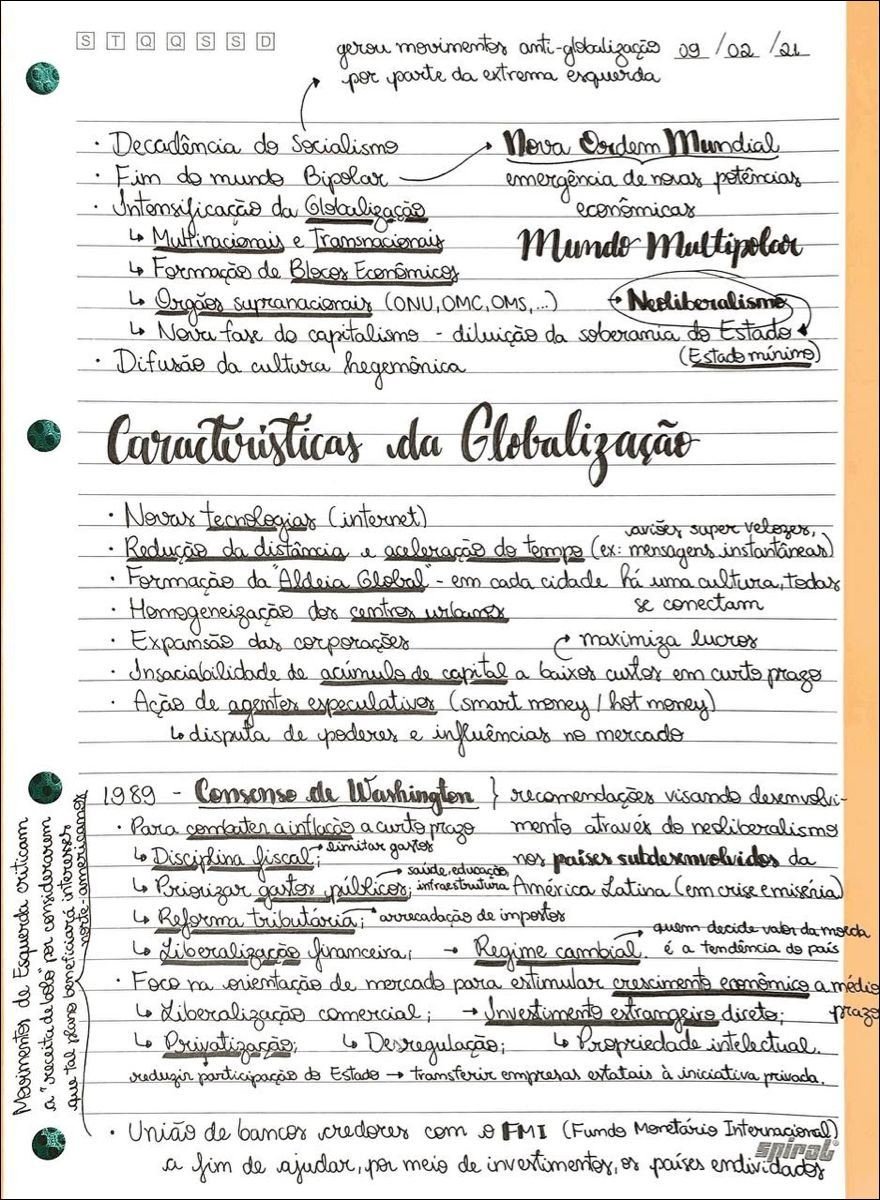 S T Q Q S S D
gerou movimentos anti-globalização 09/02/21
por parte da extrema esquerda
• Decadência do Socialismo
Nova Ordem Mundial
• Fim do mundo Bipolar
emergência de novas potências
econômicas
• Intensificação da Globalização
↳ Multinacionais e Transnacionais
Mundo Multipolar
↳ Formação de Blocos Econômicos
↳ Orgãos supranacionais (ONU, OMC, OMS,...)
→ Neoliberalismo
↳ Nova fase do capitalismo - diluição da soberania do Estado
(Estado mínimo)
• Difusão da cultura hegemônica
Características da Globalização
• Novas tecnologias (internet)
aviões super velozes,
• Redução da distância e aceleração do tempo (ex: mensagens instantâneas)
• Formação da "Aldeia Global" - em cada cidade há uma cultura, todas
se conectam
• Homogeneização dos centros urbanos
• Expansão das corporações
maximiza lucros
• Insaciabilidade de acúmulo de capital a baixos custos em curto prazo
• Ação de agentes especulativos (smart money / hot money)
↳ disputa de poderes e influências no mercado
1989 - Consenso de Washington } recomendações visando desenvolvi-
mento através do neoliberalismo
nos países subdesenvolvidos da
América Latina (em crise e miséria)
• Para combater a inflação a curto prazo
↳ Disciplina fiscal; → limitar gastos
↳ Priorizar gastos públicos; → saúde, educação,
infraestrutura
↳ Reforma tributária; → arrecadação de impostos
↳ Liberalização financeira; → Regime cambial. → quem decide valor da moeda
é a tendência do país
• Foco na orientação de mercado para estimular crescimento econômico a médio
prazo
↳ Liberalização comercial; → Investimento estrangeiro direto;
↳ Privatização; ↳ Desregulação; ↳ Propriedade intelectual.
reduzir participação do Estado → transferir empresas estatais à iniciativa privada.
• União de bancos credores com o FMI (Fundo Monetário Internacional)
a fim de ajudar, por meio de investimentos, os países endividados
Movimentos de Esquerda criticam
a "receita de bolo" por considerarem
que tal plano beneficiará interesses
norte-americanos
spiral